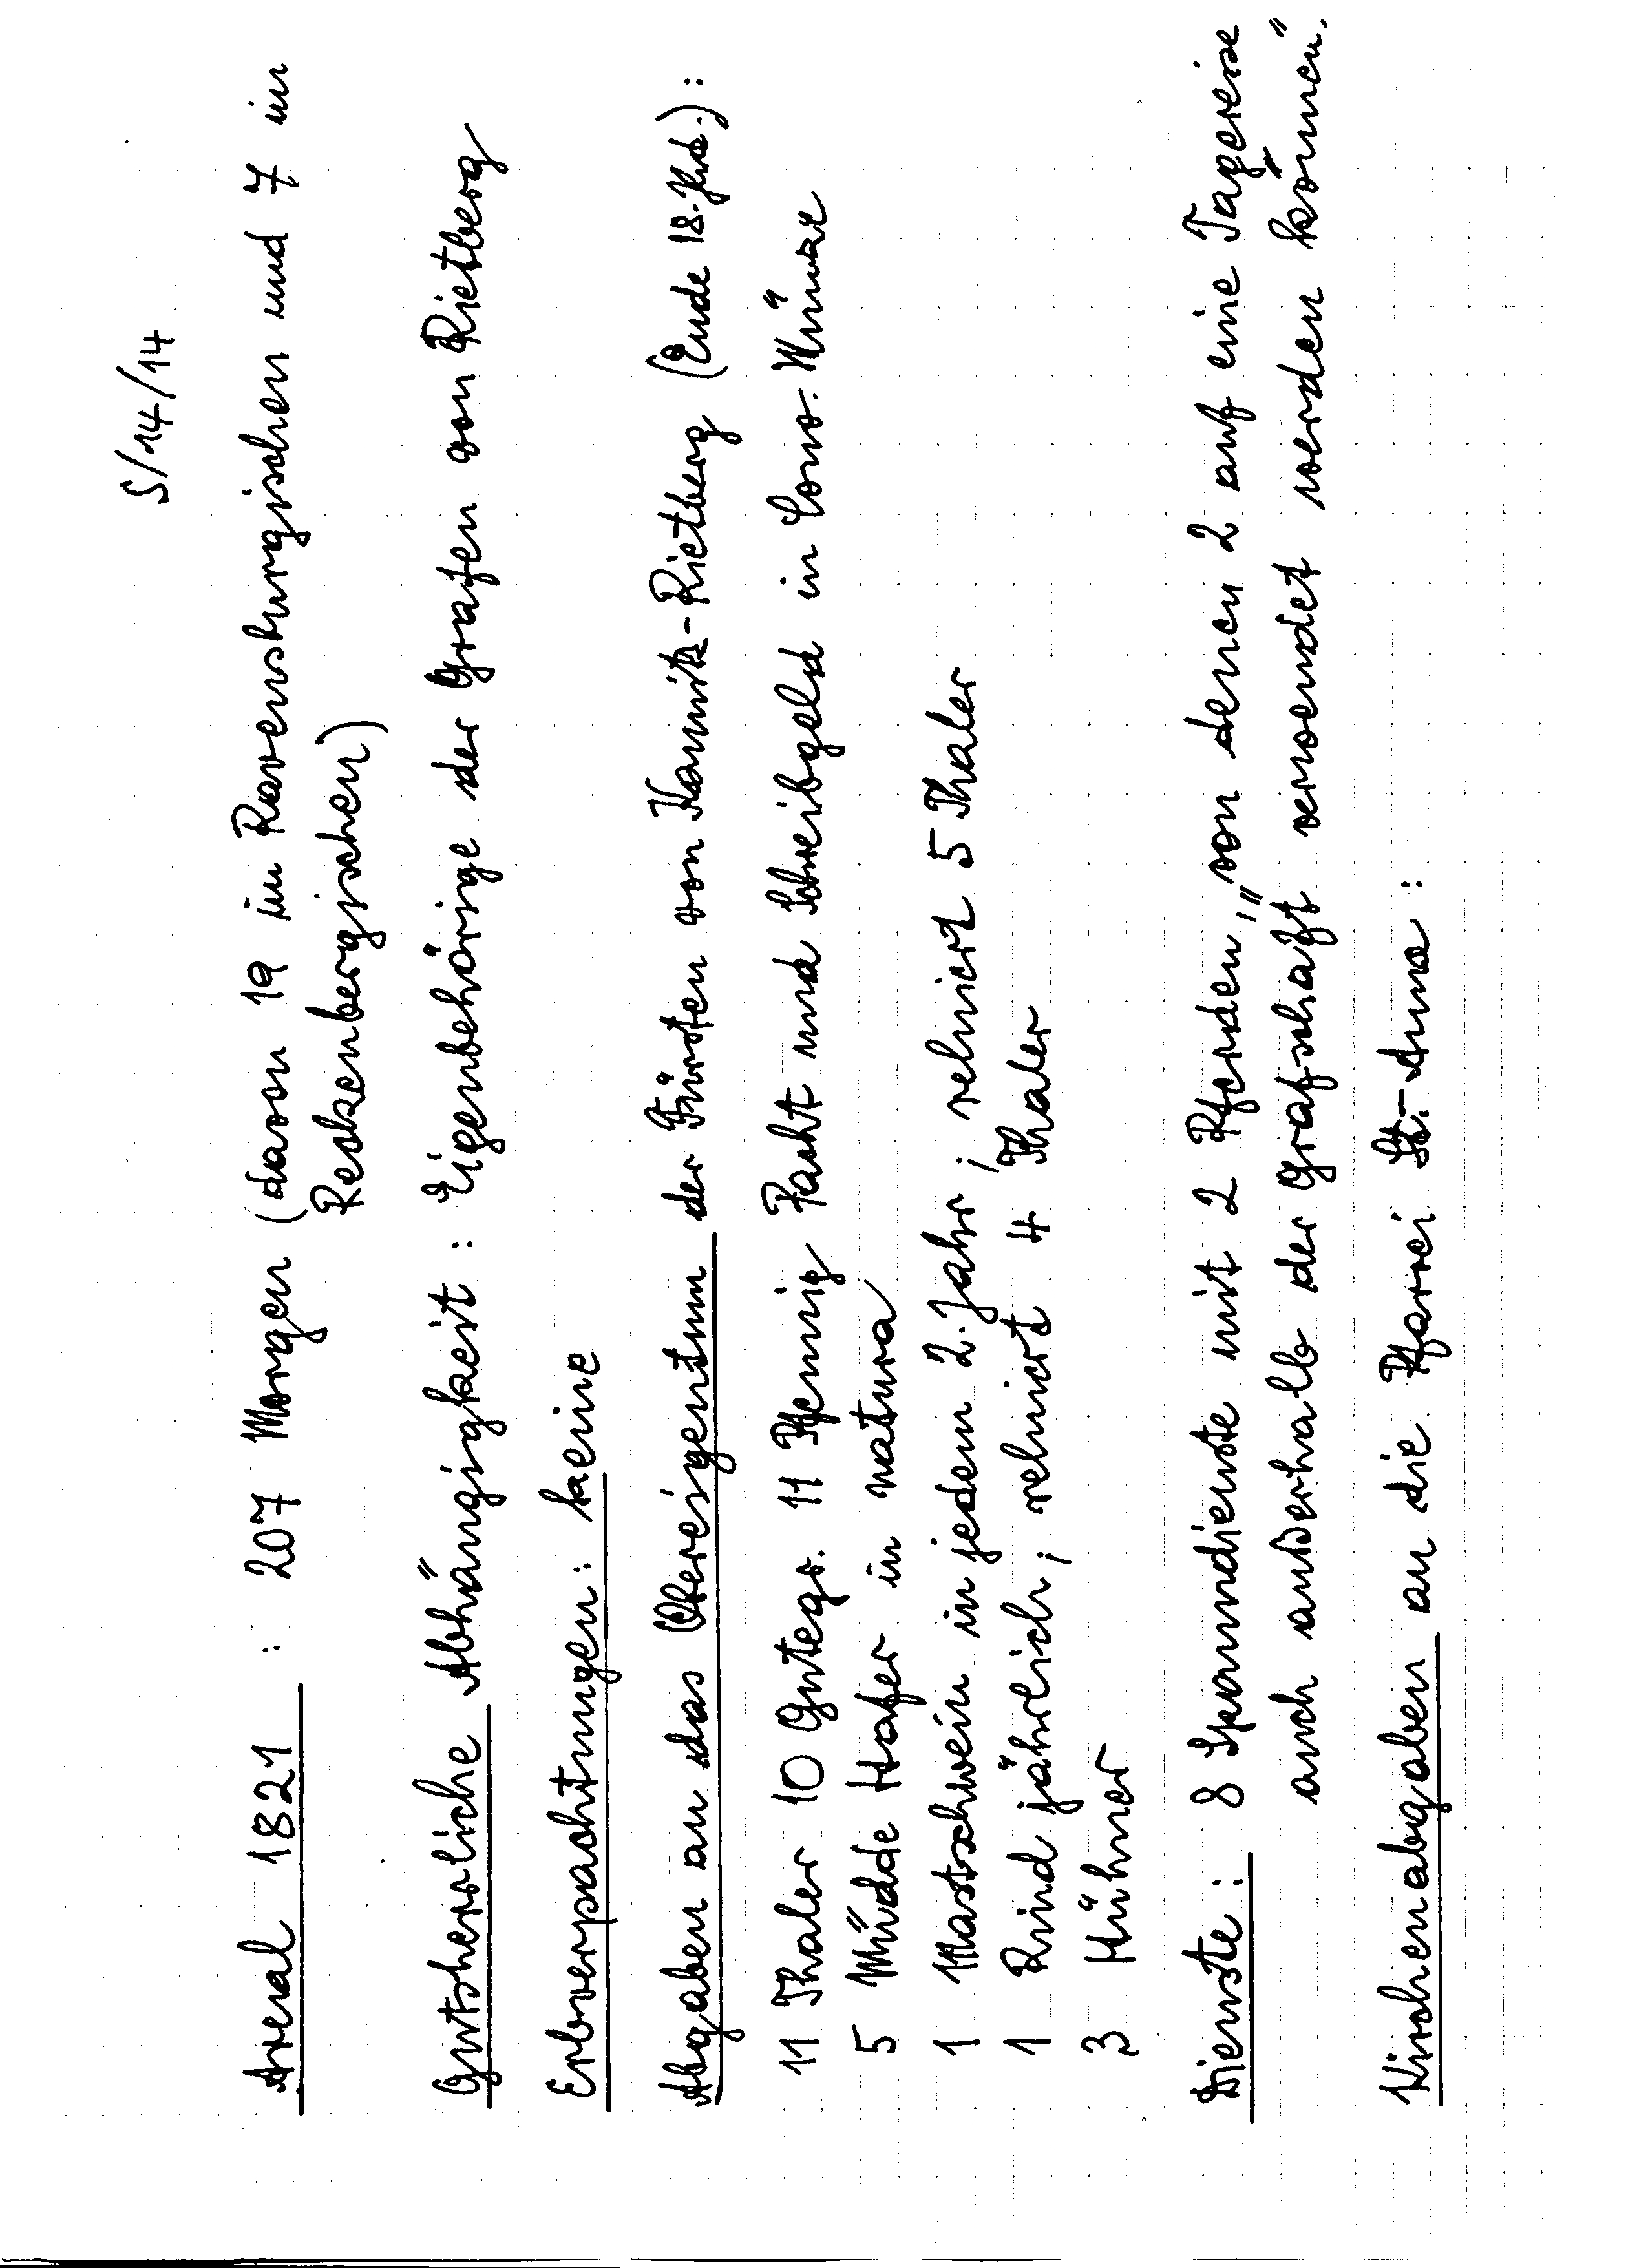 S/14/14
Areal 1821 : 207 Morgen (davon 19 im Ravensburgischen und 7 im
Reckenbergischen)
Gutsherrliche Abhängigkeit : Eigenbehörige der Grafen von Rietberg
Erbverpachtungen: keine
Abgaben an das Obereigentum der Fürsten von Kaunitz-Rietberg (Ende 18. Jhd.):
11 Thaler 10 Gutegr. 11 Pfennig Pacht und Schreibgeld in Conv. Münze
5 Müdde Hafer in natura
1 Mastschwein in jedem 2. Jahr ; reluiert 5 Thaler
1 Rind jährlich ; reluiert 4 Thaler
3 Hühner
Dienste : 8 Spanndienste mit 2 Pferden, „von denen 2 auf eine Tagereise
auch außerhalb der Grafschaft verwendet werden können."
Kirchenabgaben an die Pfarrei St.-Anna :